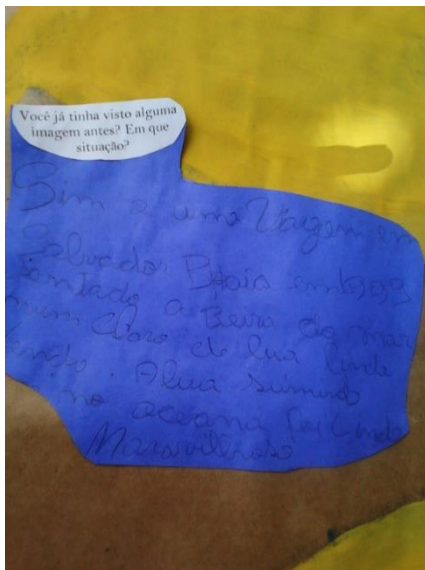 Você já tinha visto alguma
imagem antes? Em que
situação?
Sim e uma Viagem em
Salvador Bhaia em 1993
sentado a Beira do mar
num Claro de lua linda
vendo Alua sumindo
no oceano foi Lindo
Maravilhoso